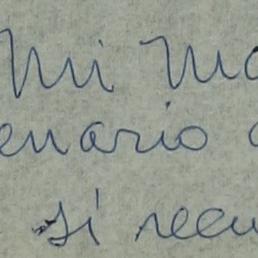 Mi ma
enario
si recu